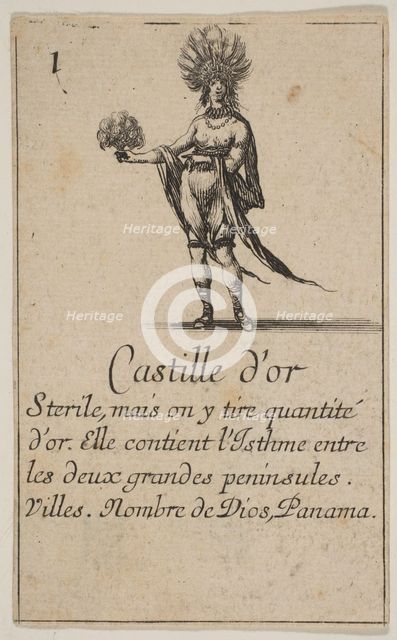 1
Heritage Heritage
Heritage Heritage
Castille d'or
Sterile, mais on y tire quantité
d'or. Elle contient l'Isthme entre
les deux grandes peninsules.
Villes. Nombre de Dios, Panama.